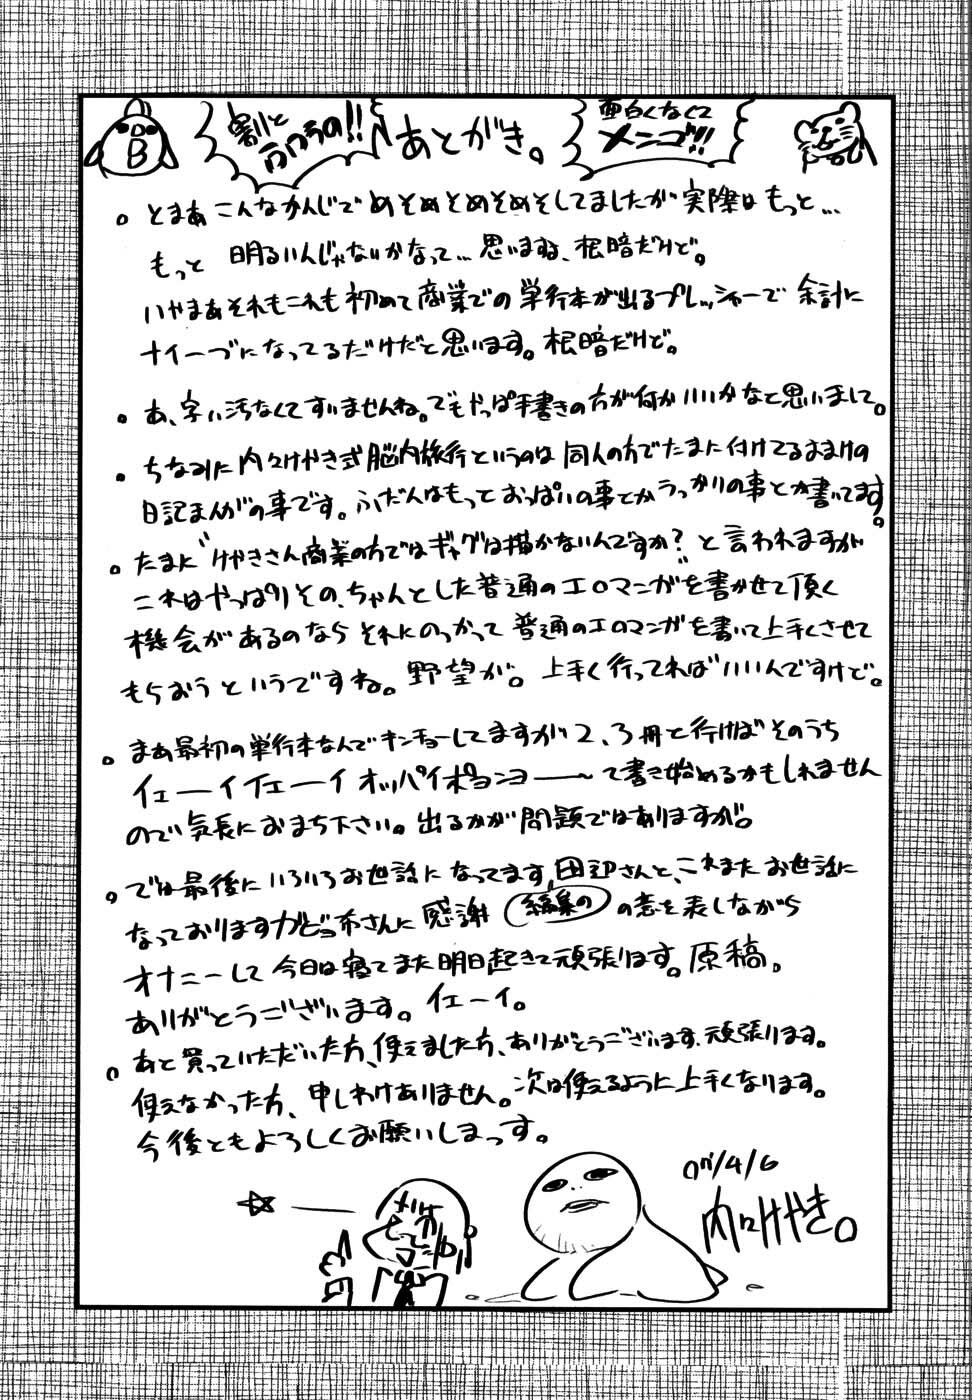 割と
フツーの!!
あとがき。
面白くなくて
メンゴ!!!
B
。とまあこんなかんじでめそめそめそめそしてましたが実際はもっと…
もっと 明るいんじゃないかなって…思いますね、根暗だけど。
いやまあそれもこれも初めて商業での単行本が出るプレッシャーで 余計に
ナイーブになってるだけだと思います。根暗だけど。
。あ、字ぃ汚なくてすいませんね。でもやっぱ手書きの方が何かいいかなと思いまして。
。ちなみに内々けやき式脳内旅行というのは同人の方でたまに付けてるおまけの
日記まんがの事です。ふだんはもっとおっぱいの事とかうっかりの事とか書いてます。
。たまに〝けやきさん商業の方ではギャグは描かないんですか?〟と言われますが
これはやっぱりその、ちゃんとした普通のエロマンガを書かせて頂く
機会があるのなら それにのっかって 普通のエロマンガを書いて上手くさせて
もらおうというですね。野望が。上手く行ってればいいんですけど。
。まあ最初の単行本なんでキンチョーしてますが2、3冊と行けばそのうち
イェーイイェーイオッパイポヨンヨー〜て書き始めるかもしれません
ので気長におまち下さい。出るかが問題ではありますが。
。では最後にいろいろお世話になってます田辺さんと、これまたお世話に
なっております 編集の さんに感謝の意を表しながら
オナニーして今日は寝てまた明日起きて頑張ります。原稿。
ありがとうございます。イェーイ。
。あと買っていただいた方、使えました方、ありがとうございます、頑張ります。
使えなかった方、申しわけありません。次は使えるように上手くなります。
今後ともよろしくお願いしまっす。
07/4/6
内々けやき。